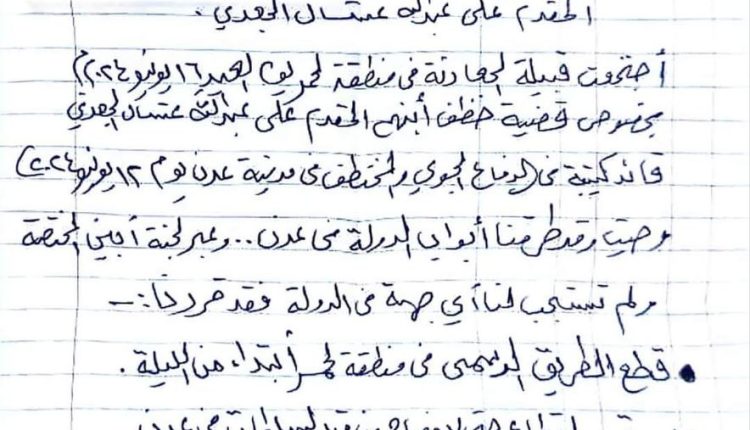 المقدم علي عبدالله عشال الجعدي.
أجتمعت قبيلة الجعادنة في منطقة لحمر يوم العيد ١٦ يونيو ٢٠٢٤م
بخصوص قضية خطف أبنهم المقدم علي عبدالله عشال الجعدي
قائد كتيبة في الدفاع الجوي والمختطف في مدينة عدن يوم ١٢ يونيو ٢٠٢٤
وحيث وقد طرقنا أبواب الدولة في عدن.. وعبر لجنة أبين المختصة
ولم تستجب لنا أي جهة في الدولة فقد قررنا:ــ
• قطع الطريق الرسمي في منطقة لحمر أبتداء من الليلة.
في عدن